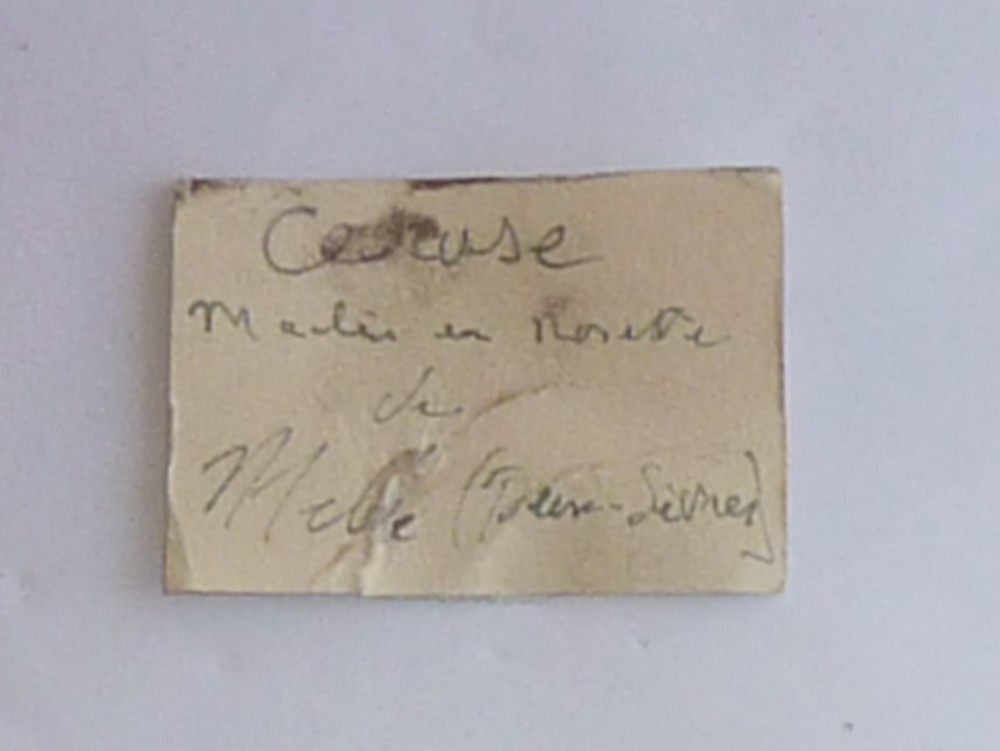 Ceruse
Macles en Rosette
de
Melle (Deux-Sèvres)